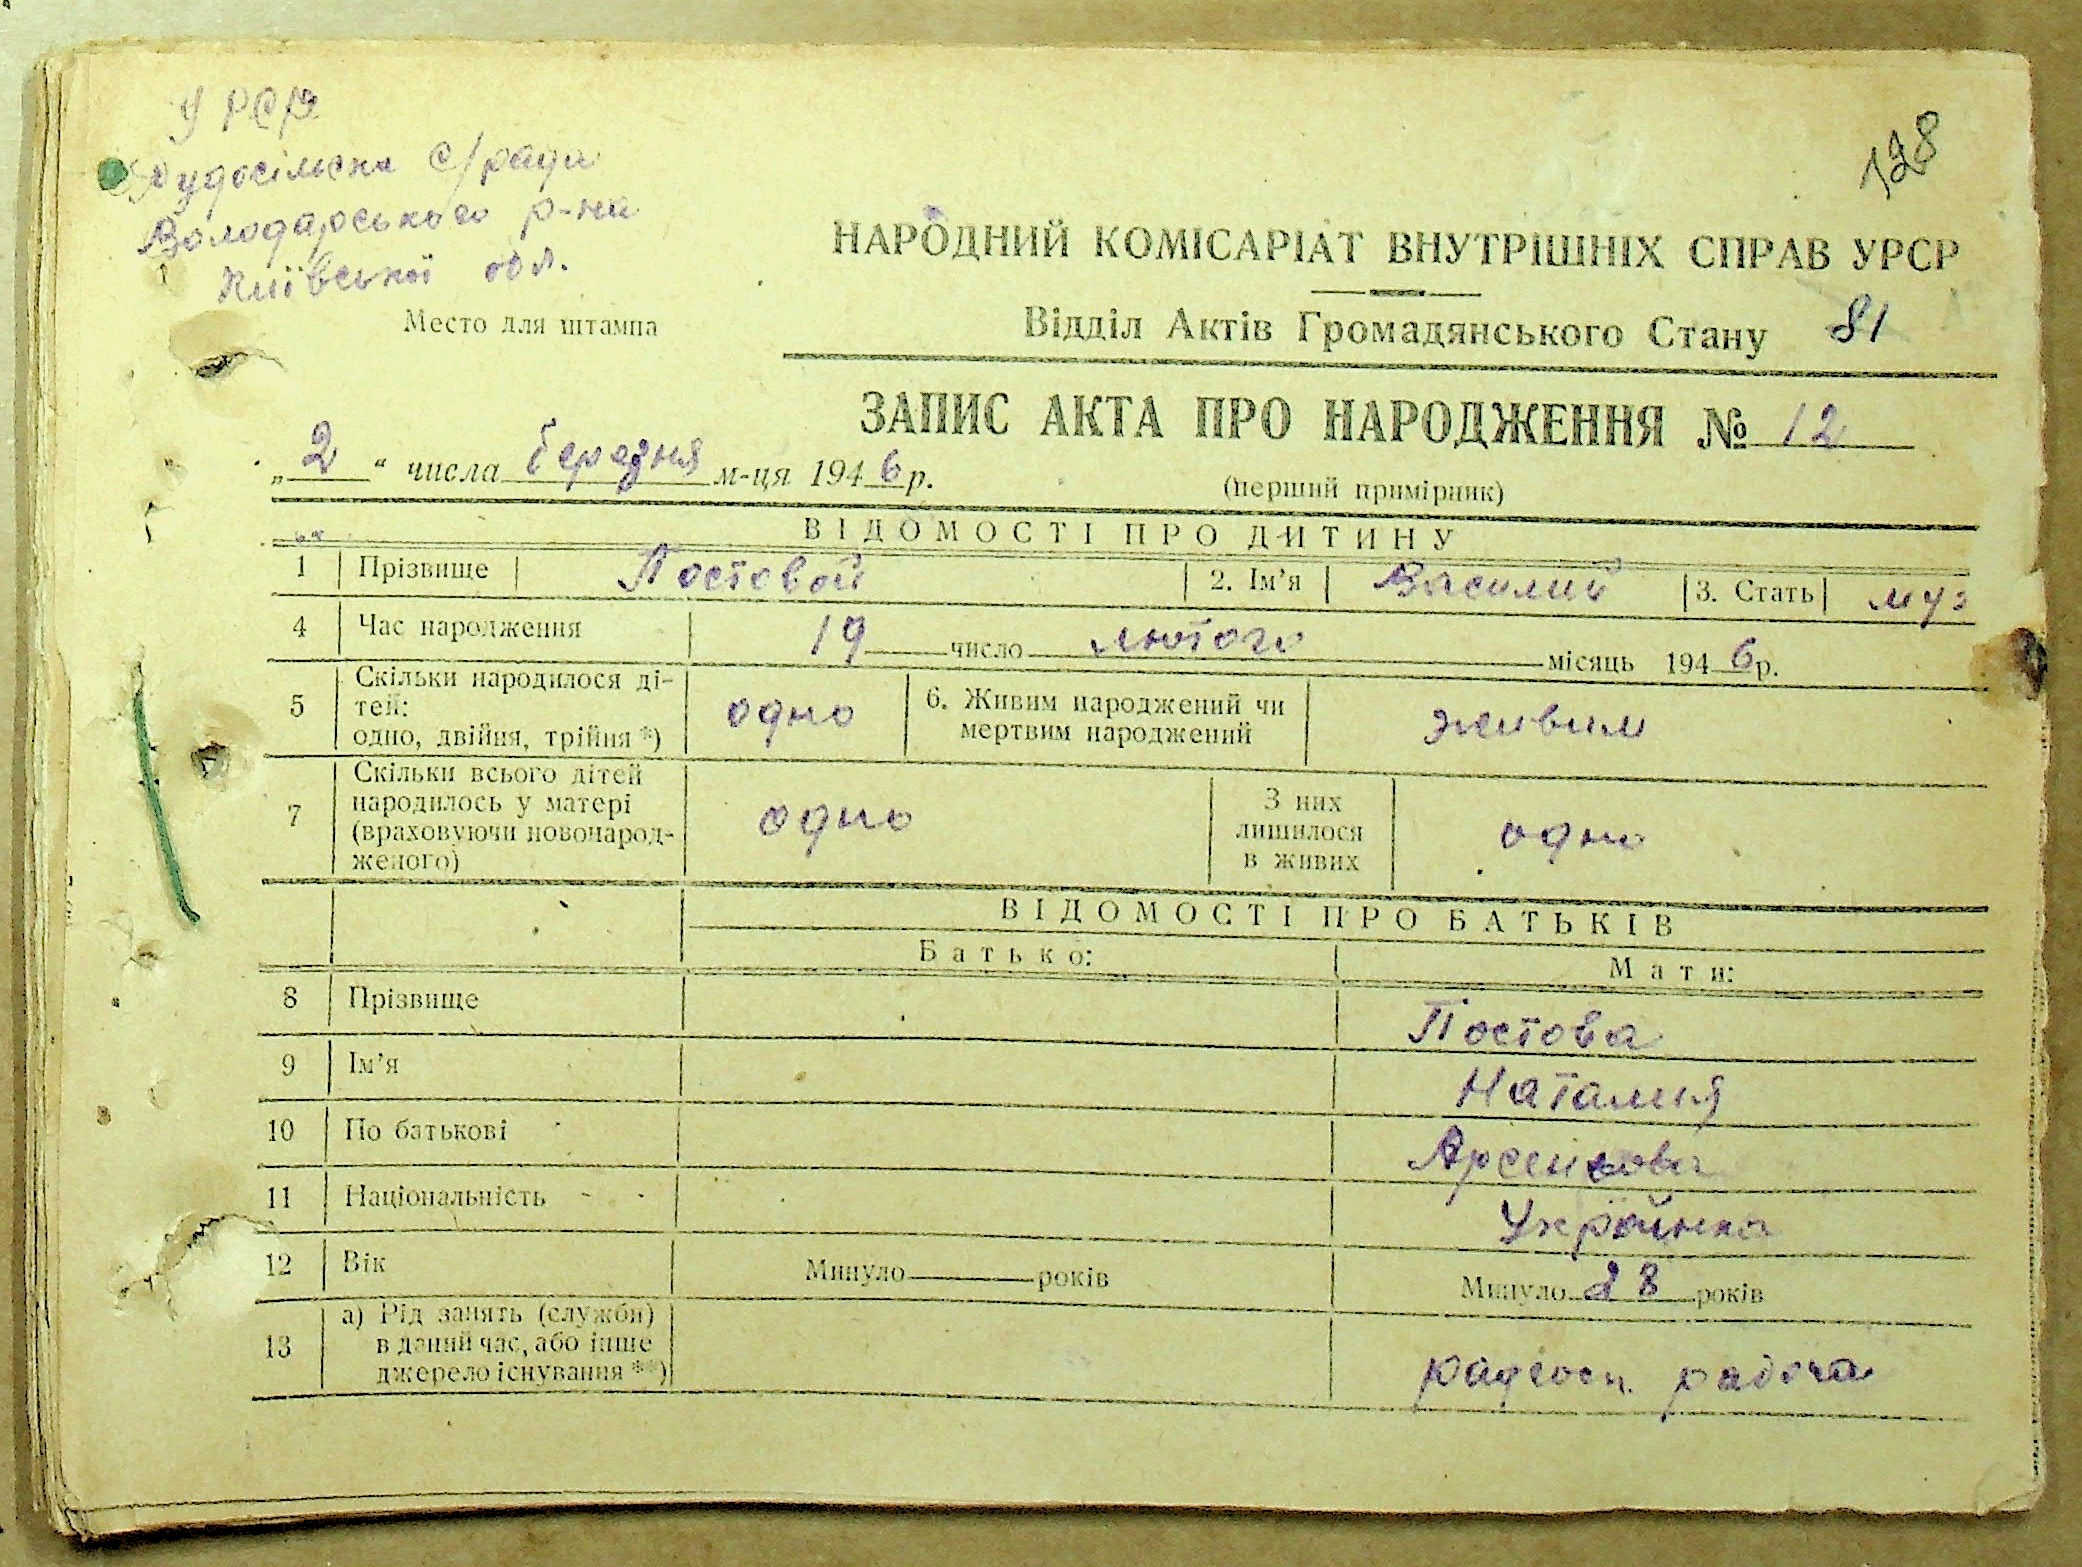 УРСР
Рудосільська с/рада
Володарського р-на
Київської обл.
Место для штампа
128
НАРОДНИЙ КОМІСАРІАТ ВНУТРІШНІХ СПРАВ УРСР
Відділ Актів Громадянського Стану 81
ЗАПИС АКТА ПРО НАРОДЖЕННЯ № 12
„ 2 “ числа березня м-ця 1946 р.
(перший примірник)
ВІДОМОСТІ ПРО ДИТИНУ
1 Прізвище Постовой 2. Ім’я Василий 3. Стать муз
4 Час народження 19 число лютого місяць 1946 р.
5 Скільки народилося ді-
тей:
одно, двійня, трійня *) одно 6. Живим народжений чи
мертвим народжений живим
7 Скільки всього дітей
народилось у матері
(враховуючи новонарод-
женого) одно З них
лишилося
в живих одно
ВІДОМОСТІ ПРО БАТЬКІВ
Батько: Мати:
8 Прізвище Постова
9 Ім’я Наталия
10 По батькові Арсентова
11 Національність Українка
12 Вік Минуло років Минуло 28 років
13 а) Рід занять (служби)
в даний час, або інше
джерело існування **) радгосп. рабоча